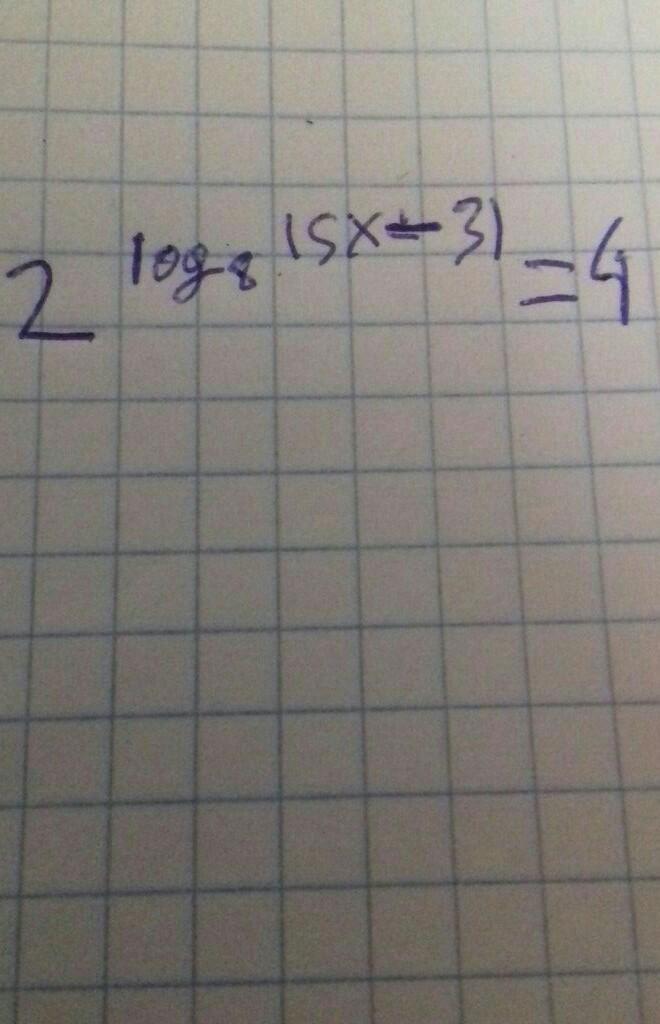 2^log₈(5x-3)=4